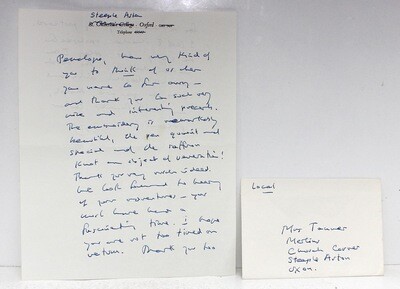 Steeple Aston
Oxford
Telephone
Penelope, how very kind of
you to think of us when
you were so far away –
and thank you for such very
nice and interesting presents.
The embroidery is
beautiful, the pen
special and the saffron
an object of veneration!
Thank you very much indeed.
We look forward to hearing
of your adventures – you
must have had a
fascinating time. I hope
you are not too tired on
return. Thank you too
Local
Mrs Tanner
Merlins
Church Corner
Steeple Aston
Oxon.